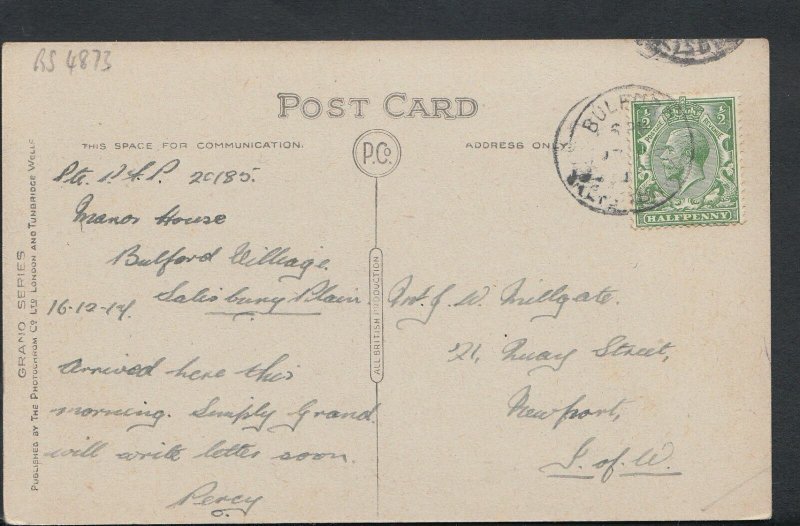 RS 4873
POST CARD
THIS SPACE FOR COMMUNICATION.
P.Co.
ADDRESS ONLY
½ ½
HALFPENNY
GRANO SERIES
PUBLISHED BY THE PHOTOCHROM CO LTD LONDON AND TUNBRIDGE WELLS
ALL BRITISH PRODUCTION
Pte. 20185.
Manor House
Bulford Village.
Salisbury Plain.
16-12-14.
arrived here this
morning. Simply Grand.
will write letter soon.
Percy
J. W. Millgate.
21, Quay Street,
Newport,
I. of. W.